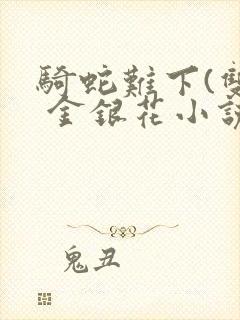 騎蛇難下(雙
金銀花小說
鬼丑